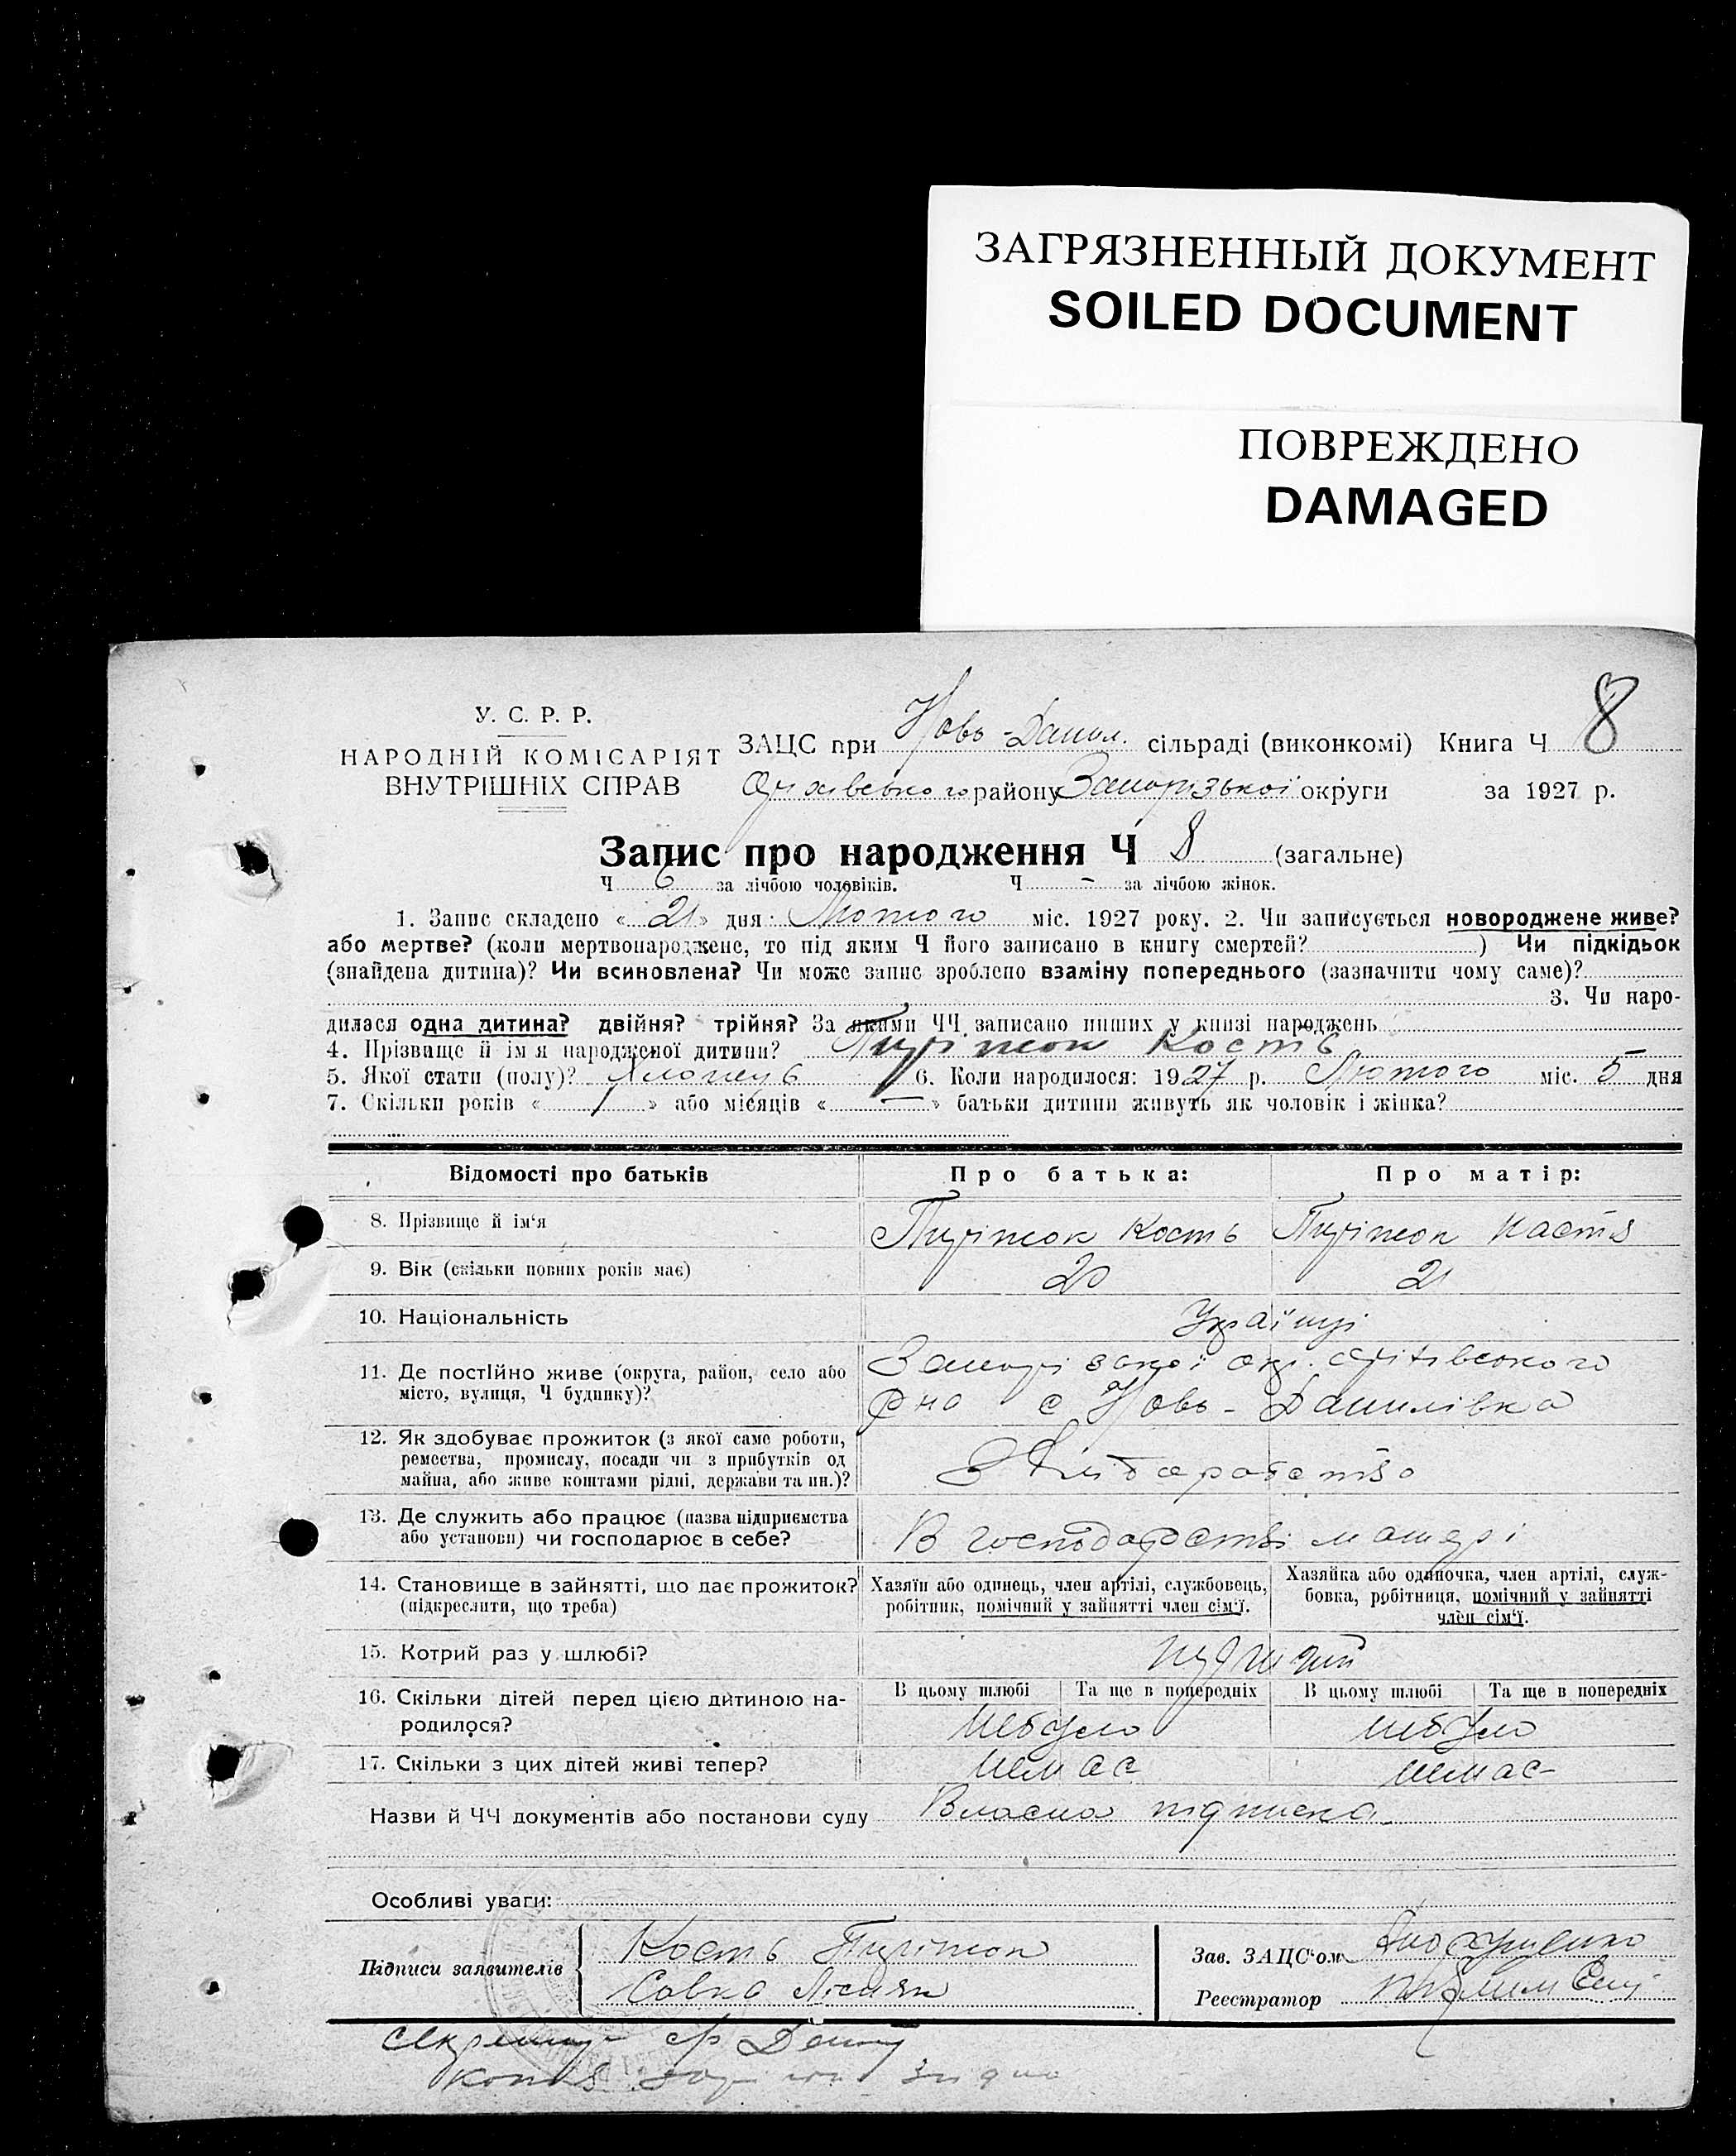 ЗАГРЯЗНЕННЫЙ ДОКУМЕНТ
SOILED DOCUMENT
ПОВРЕЖДЕНО
DAMAGED
8
У. С. Р. Р.
НАРОДНІЙ КОМІСАРІЯТ
ВНУТРІШНІХ СПРАВ
ЗАЦС при Ново-Данил. сільраді (виконкомі) Книга Ч
району Запорізької округи за 1927 р.
Запис про народження Ч 8 (загальне)
Ч 6 за лічбою чоловіків. Ч - за лічбою жінок.
1. Запис складено « 21 » дня Лютого міс. 1927 року. 2. Чи записується новороджене живе?
або мертве? (коли мертвонароджене, то під яким Ч його записано в книгу смертей? ) Чи підкідьок
(знайдена дитина)? Чи всиновлена? Чи може запис зроблено взаміну попереднього (зазначити чому саме)?
3. Чи наро-
дилася одна дитина? двійня? трійня? За якими ЧЧ записано инших у книзі народжень
4. Прізвище й ім'я народженої дитини? Пирішок Кость
5. Якої стати (полу)? Хлопець 6. Коли народилося: 1927 р. Лютого міс. 5 дня
7. Скільки років « 1 » або місяців « — » батьки дитини живуть як чоловік і жінка?
Відомості про батьків Про батька: Про матір:
8. Прізвище й ім'я Кость Настя
9. Вік (скільки повних років має) 20 21
10. Національність Українці
11. Де постійно живе (округа, район, село або
місто, вулиця, Ч будинку)?
с Ново-Данилівка
12. Як здобуває прожиток (з якої саме роботи,
ремества, промислу, посади чи з прибутків од
майна, або живе коштами рідні, держави та ин.)?
З Хліборобство
13. Де служить або працює (назва підприємства
або установи) чи господарює в себе?
В господарстві матері
14. Становище в зайнятті, що дає прожиток?
(підкреслити, що треба)
Хазяїн або одинець, член артілі, службовець,
робітник, помічний у зайнятті член сім'ї.
Хазяйка або одиночка, член артілі, служ-
бовка, робітниця, помічний у зайнятті
член сім'ї.
15. Котрий раз у шлюбі? перший
16. Скільки дітей перед цією дитиною на-
родилося?
В цьому шлюбі Та ще в попередніх В цьому шлюбі Та ще в попередніх
небуло небуло
17. Скільки з цих дітей живі тепер? немає немає
Назви й ЧЧ документів або постанови суду Власна підписка
Особливі уваги:
Підписи заявителів
Кость
Савка
Зав. ЗАЦС'ом
Реєстратор